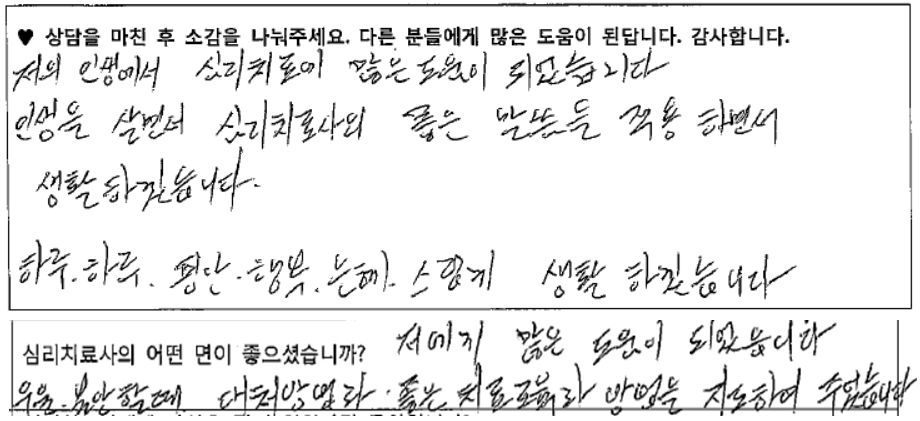 ♥ 상담을 마친 후 소감을 나눠주세요. 다른 분들에게 많은 도움이 된답니다. 감사합니다.
저의 인생에서 심리치료이 많은 도움이 되었습니다
인생을 살면서 심리치료사의 좋은 말뜻을 적용 하면서
생활하겠습니다.
하루.하루. 평안.행복.은혜.스럽게 생활 하겠습니다
심리치료사의 어떤 면이 좋으셨습니까? 저에게 많은 도움이 되었습니다
우울.불안할때 대처방법과.좋은 치료 방법을 지도하여 주었습니다